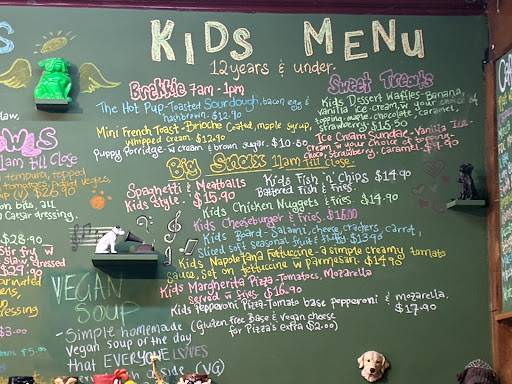 KiDS MENU
12 years & under
Brekkie 7am - 1pm
The Hot Pup - Toasted Sourdough, bacon egg &
hashbrown. $12.90
Mini French Toast - Brioche Coated, maple syrup,
whipped cream. $12.90
Puppy Porridge - w cream & brown sugar. $10.80
Sweet Treats
Kids Dessert Waffles - Banana,
vanilla ice cream, w your choice of
topping - maple, chocolate, caramel,
strawberry. $15.50
Ice Cream Sundae - Vanilla Ice-
cream w your choice of
choco, strawberry, caramel. $7.90
Big Snacks 11am till Close
Spaghetti & Meatballs
Kids Style. - $15.90
Kids Fish 'n' Chips $14.90
Battered Fish & Fries.
Kids Chicken Nuggets & Fries. $14.90
Kids Cheeseburger & Fries. $15.00
Kids Board - Salami, cheese, crackers, carrot,
sliced soft seasonal fruit & $13.95
Kids Napoletana Fettuccine - a simple creamy tomato
sauce, set on fettuccine w Parmesan. $14.90
Kids Margherita Pizza - Tomatoes, Mozarella
served w fries. $16.90
Kids Pepperoni Pizza - Tomato base pepperoni & mozarella.
$17.90
(Gluten free Base & vegan cheese
for Pizza's extra $2.00)
S
11am till Close
tempura, topped
bits, all
Caesar dressing.
$28.90
Stir fry w
$29.90
dressing
VEGAN
SOUP
- Simple homemade
Vegan soup of the day
that EVERYONE LOVES
a side (VG)